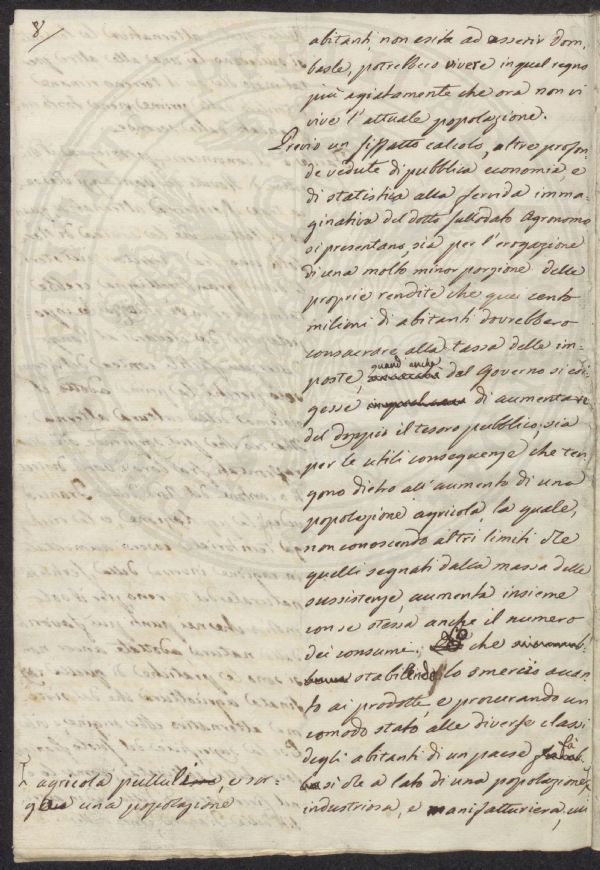 8/
abitanti, non esita ad asserir Dom-
basle, potrebbero vivere in quel regno
più agiatamente che ora non vi
vive l'attuale popolazione.
Previo un siffatto calcolo, altre profon-
de vedute di pubblica economia, e
di statistica alla fervida imma-
ginativa del dotto sullodato Agronomo
si presentano, sia per l'erogazione
di una molto minor porzione delle
proprie rendite che quei cento
milioni di abitanti dovrebbero
consacrare alla tassa delle im-
poste, quand'anche dal Governo si esi-
gesse di aumentare
del doppio il tesoro pubblico, sia
per le utili conseguenze che ten-
gono dietro all'aumento di una
popolazione agricola, la quale,
non conoscendo altri limiti che
quelli segnati dalla massa delle
sussistenze, aumenta insieme
con se stessa anche il numero
dei consumi; che
stabilendo lo smercio quan-
to ai prodotti, e procurando un
comodo stato alle diverse classi
degli abitanti di un paese fà
si che a lato di una popolazione
industriosa, e manifatturiera, un
agricola pulluli, e sor-
ga una popolazione